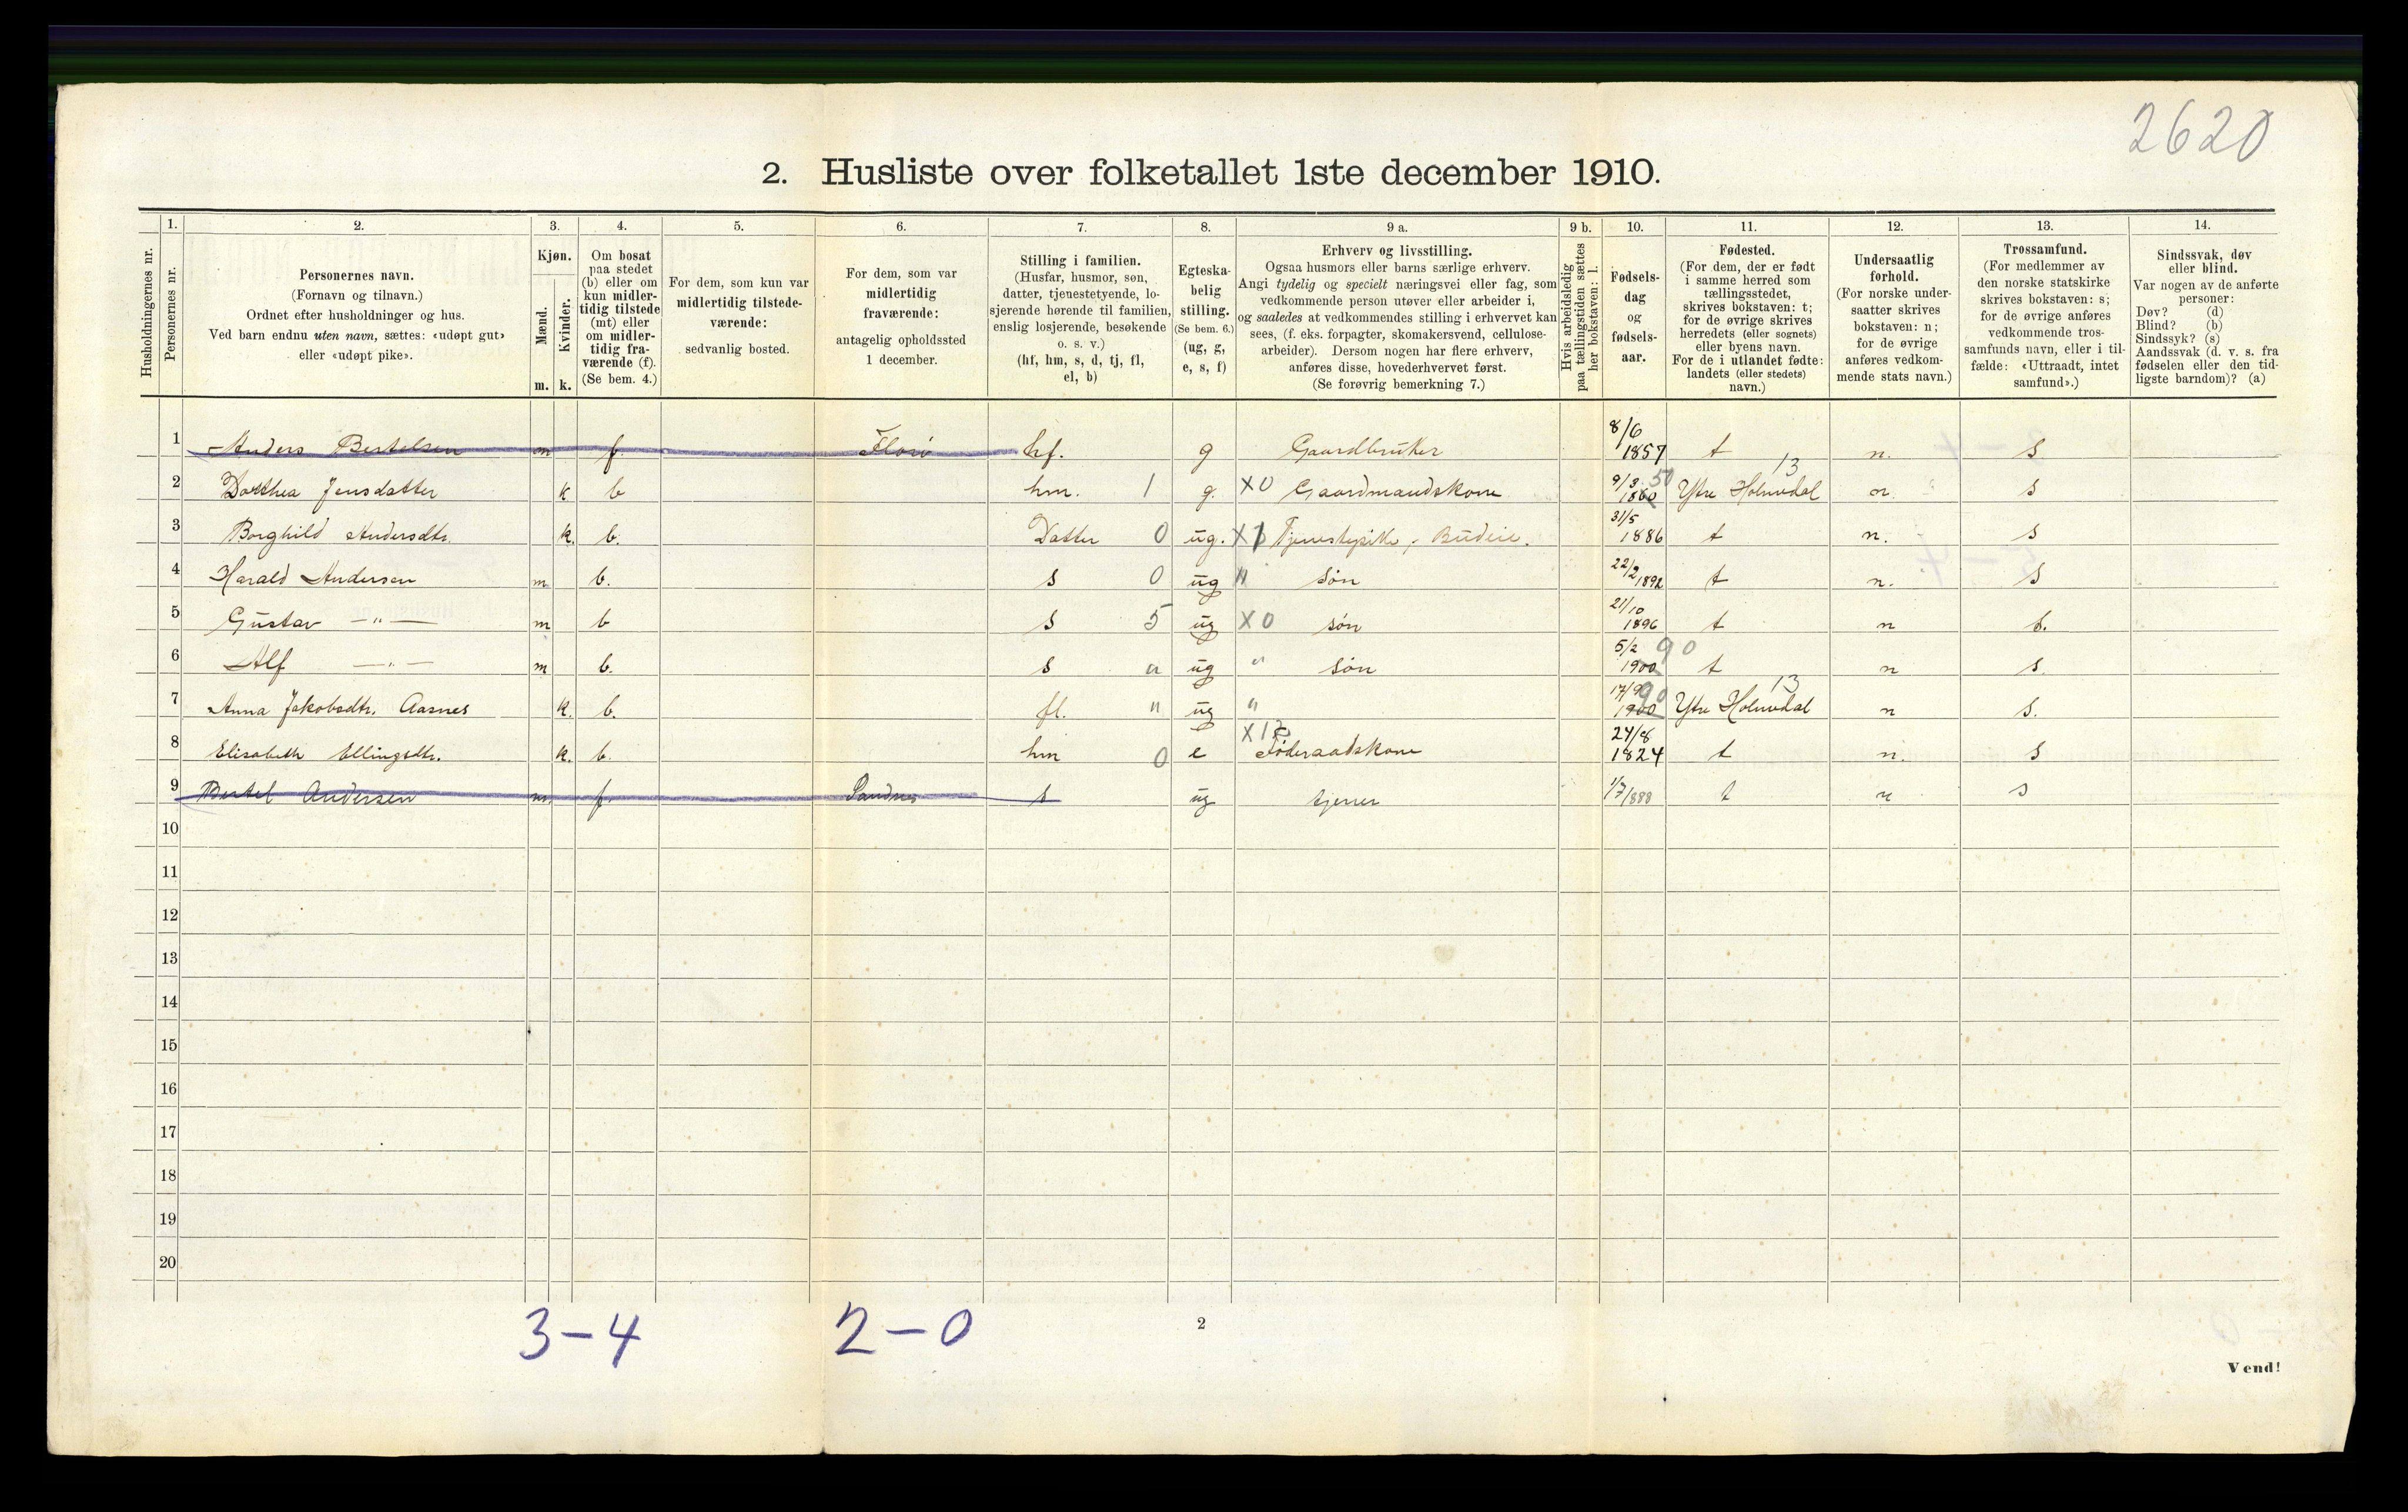 2620
2. Husliste over folketallet 1ste december 1910.
Husholdningernes nr.
1. Personernes nr.
2. Personernes navn. (Fornavn og tilnavn.) Ordnet efter husholdninger og hus. Ved barn endnu uten navn, sættes: «udøpt gut» eller «udøpt pike».
3. Kjøn. Mænd. m. Kvinder. k.
4. Om bosat paa stedet (b) eller om kun midlertidig tilstede (mt) eller om midlertidig fraværende (f). (Se bem. 4.)
5. For dem, som kun var midlertidig tilstedeværende: sedvanlig bosted.
6. For dem, som var midlertidig fraværende: antagelig opholdssted 1 december.
7. Stilling i familien. (Husfar, husmor, søn, datter, tjenestetyende, losjerende hørende til familien, enslig losjerende, besøkende o. s. v.) (hf, hm, s, d, tj, fl, el, b)
8. Egteskabelig stilling. (Se bem. 6.) (ug, g, e, s, f)
9 a. Erhverv og livsstilling. Ogsaa husmors eller barns særlige erhverv. Angi tydelig og specielt næringsvei eller fag, som vedkommende person utøver eller arbeider i, og saaledes at vedkommendes stilling i erhvervet kan sees, (f. eks. forpagter, skomakersvend, cellulosearbeider). Dersom nogen har flere erhverv, anføres disse, hovederhvervet først. (Se forøvrig bemerkning 7.)
9 b. Hvis arbeidsledig paa tællingstiden sættes her bokstaven: l.
10. Fødselsdag og fødselsaar.
11. Fødested. (For dem, der er født i samme herred som tællingsstedet, skrives bokstaven: t; for de øvrige skrives herredets (eller sognets) eller byens navn. For de i utlandet fødte: landets (eller stedets) navn.)
12. Undersaatlig forhold. (For norske undersaatter skrives bokstaven: n; for de øvrige anføres vedkommende stats navn.)
13. Trossamfund. (For medlemmer av den norske statskirke skrives bokstaven: s; for de øvrige anføres vedkommende trossamfunds navn, eller i tilfælde: «Uttraadt, intet samfund».)
14. Sindssvak, døv eller blind. Var nogen av de anførte personer: Døv? (d) Blind? (b) Sindssyk? (s) Aandssvak (d. v. s. fra fødselen eller den tidligste barndom)? (a)
1 Anders Bertelsen m f Florø hf. g Gaardbruker 8/6 1857 t n. s
2 Dorthea Jensdatter k b hm. 1 g. X0 Gaardmandskone 9/3 1860 50 Ytre Holmedal 13 n s
3 Borghild Andersdtr. k. b. Datter 0 ug. X Tjenestepike, Budeie. 31/5 1886 t n. s
4 Harald Andersen m b. s 0 ug " søn 22/2 1892 t n. s
5 Gustav —"— m b s 5 ug X0 søn 21/10 1896 t n s.
6 Alf —"— m b. s " ug " søn 5/2 1900 90 t n s.
7 Anna Jakobsdtr. Aasnes k. b. fl. " ug " 17/9 1900 90 Ytre Holmedal 13 n s.
8 Elisabeth Ellingsdtr. k. b. hm 0 e X Føderaadskone 24/8 1824 t n. s
9 Bertel Andersen m f Sandnes s ug tjener 1/7 1888 t n s
10
11
12
13
14
15
16
17
18
19
20
3-4 2-0
2
Vend!